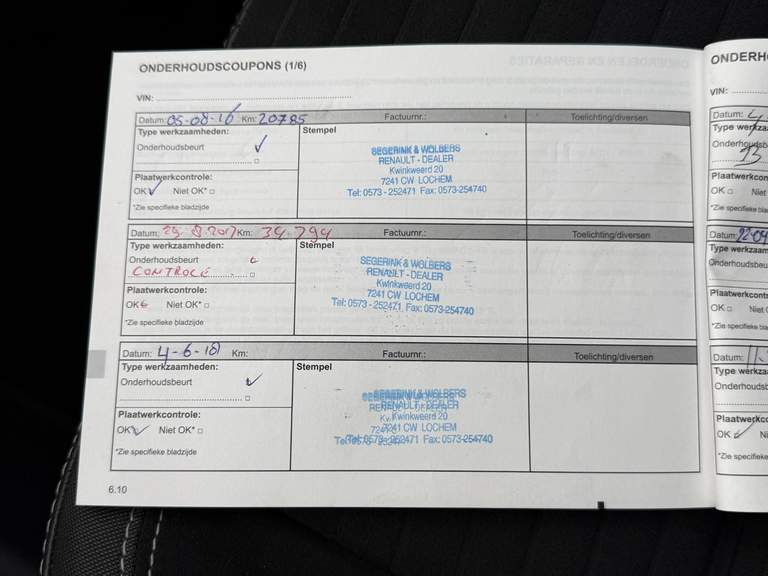 ONDERHOUDSCOUPONS (1/6)
VIN:
Datum: 05-08-16 Km: 20785 Factuurnr.: Toelichting/diversen
Type werkzaamheden: Stempel
Onderhoudsbeurt
Plaatwerkcontrole:
OK Niet OK*
*Zie specifieke bladzijde
SEGERINK & WOLBERS
RENAULT - DEALER
Kwinkweerd 20
7241 CW LOCHEM
Tel: 0573 - 252471 Fax: 0573-254740
Datum: 29-8-2017 Km: 34.794 Factuurnr.: Toelichting/diversen
Type werkzaamheden: Stempel
Onderhoudsbeurt
CONTROLE
Plaatwerkcontrole:
OK Niet OK*
*Zie specifieke bladzijde
SEGERINK & WOLBERS
RENAULT - DEALER
Kwinkweerd 20
7241 CW LOCHEM
Tel: 0573 - 252471 Fax: 0573-254740
Datum: 4-6-18 Km: Factuurnr.: Toelichting/diversen
Type werkzaamheden: Stempel
Onderhoudsbeurt
Plaatwerkcontrole:
OK Niet OK*
*Zie specifieke bladzijde
SEGERINK & WOLBERS
RENAULT - DEALER
Kwinkweerd 20
7241 CW LOCHEM
Tel: 0573 - 252471 Fax: 0573-254740
6.10
ONDERH
VIN:
Datum: 4
Type werkza
Onderhoudsb
13
Plaatwerkcon
OK Niet
*Zie specifieke
Datum: 22-04
Type werkza
Onderhoudsbeu
Plaatwerkcont
OK Niet
*Zie specifieke
Datum: 11-
Type werkza
Onderhoudsb
Plaatwerkco
OK Ni
*Zie specifieke